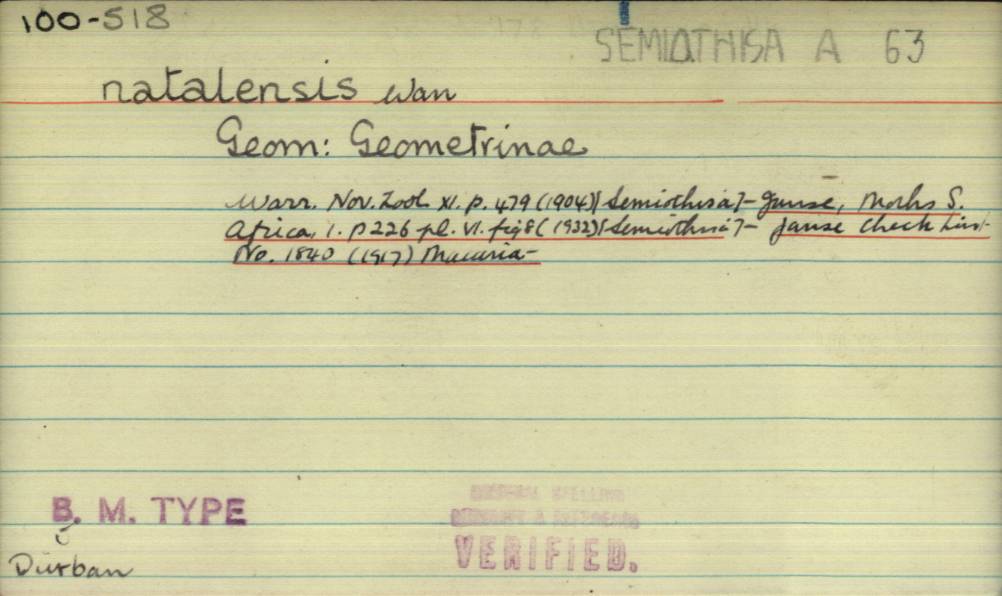 100-518
SEMIOTHISA A 63
natalensis Warr
Geom: Geometrinae
Warr. Nov. Zool. XI. p. 479 (1904) [Semiothisa] - Janse, Moths S.
Africa, 1. p 226 pl. VI. fig 8 (1932) [Semiothisa] - Janse Check List
No. 1840 (1917) Macaria -
B. M. TYPE
Durban
ORIGINAL SPELLING
VERIFIED.